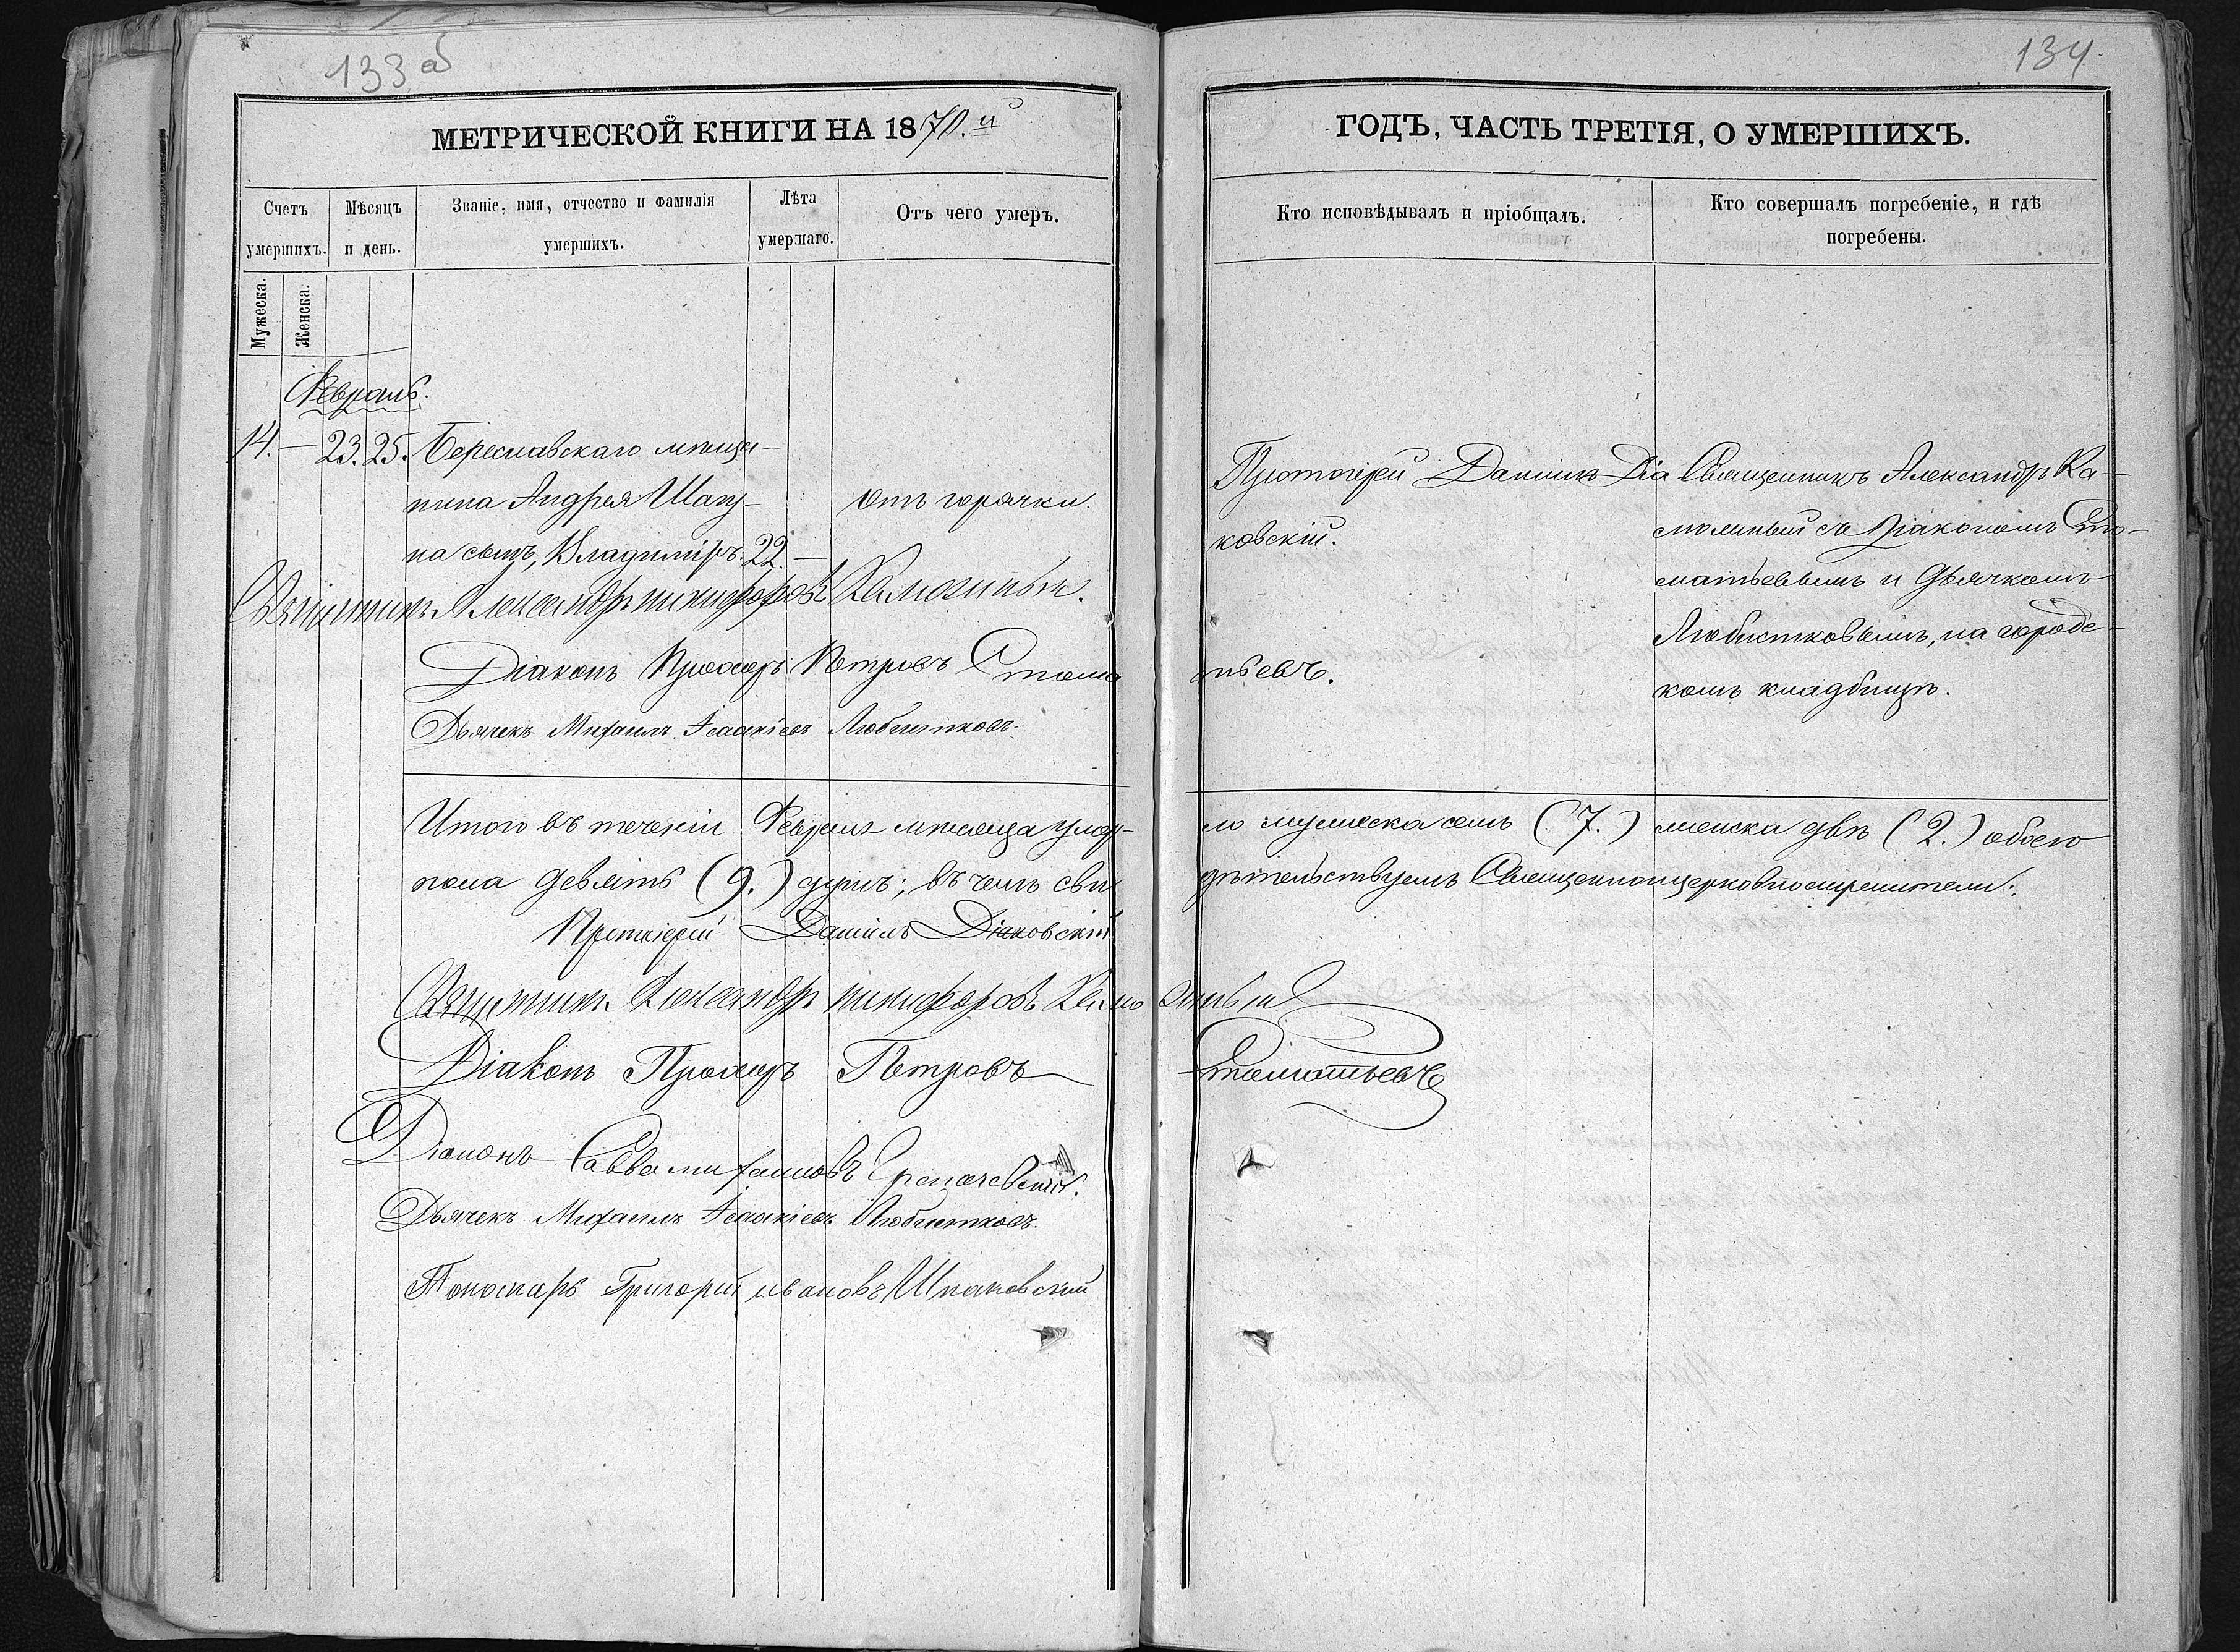 133 об
134
МЕТРИЧЕСКОЙ КНИГИ НА 1870.й
ГОДЪ, ЧАСТЬ ТРЕТІЯ, О УМЕРШИХЪ.
Счетъ умершихъ.
Мѣсяцъ и день.
Званіе, имя, отчество и фамилія умершихъ.
Лѣта умершаго.
Отъ чего умеръ.
Кто исповѣдывалъ и пріобщалъ.
Кто совершалъ погребеніе, и гдѣ погребены.
Мужеска.
Женска.
Февраль.
14. — 23. 25. Береславскаго мѣща-
нина Андрея Шапу-
на сынъ, Владиміръ. 22. —
отъ горячки.
Протоіерей Даніилъ Діа
ковскій.
Священникъ Александръ Ка-
мозинъ съ Діакономъ Сто-
матьевымъ и Дьячкомъ
Любистковымъ, на городс-
комъ кладбищѣ.
Священникъ Александръ Никифоровъ
Діаконъ Прохоръ Петровъ Стома
тьевъ.
Дьячекъ Михаилъ Ісаакіевъ Любистковъ.
Итого въ теченіи Февраля мѣсяца умер-
ло мужеска семь (7.) женска двѣ (2.) обоего
пола девять (9.) душъ; въ чемъ сви
дѣтельствуемъ Священноцерковнослужители:
Протоіерей Даніилъ Діаковскій
Священникъ Александръ Никифоровъ
Діаконъ Прохоръ Петровъ
Стоматьевъ
Діаконъ Савва Михайловъ
Дьячекъ Михаилъ Ісаакіевъ Любистковъ.
Пономарь Григорій Ивановъ Шпаковскій